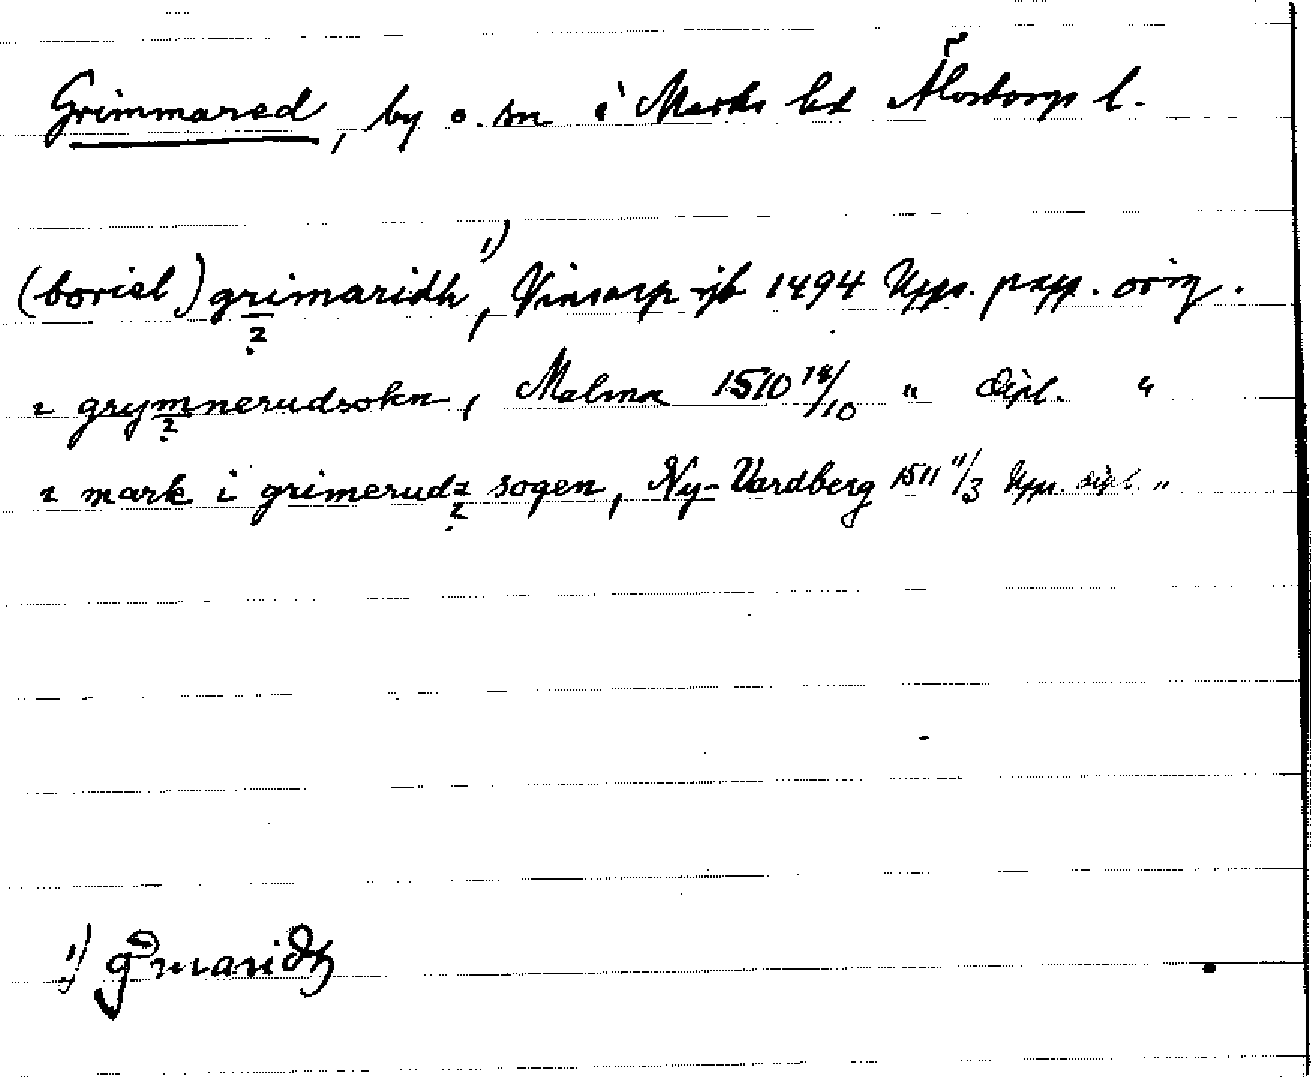 Grimmared, by o. sn i Marks hd Älvsborgs l.
(boriel) grimaridh 1), Vinsarp -jb 1494 Upps. papp. orig.
2
ı grymnerudsokn, Malma 1510 18/10 " dipl. "
2
ı mark i grimerudz sogen, Ny-Vardberg 1511 11/3 Upps. dipl. "
2
1) gmaridh